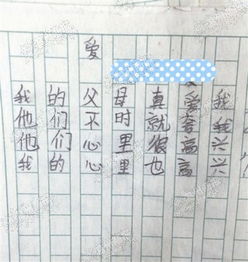 爱
我的父母真爱我
他们不时就我
他们心里很高兴
我的心里也高兴